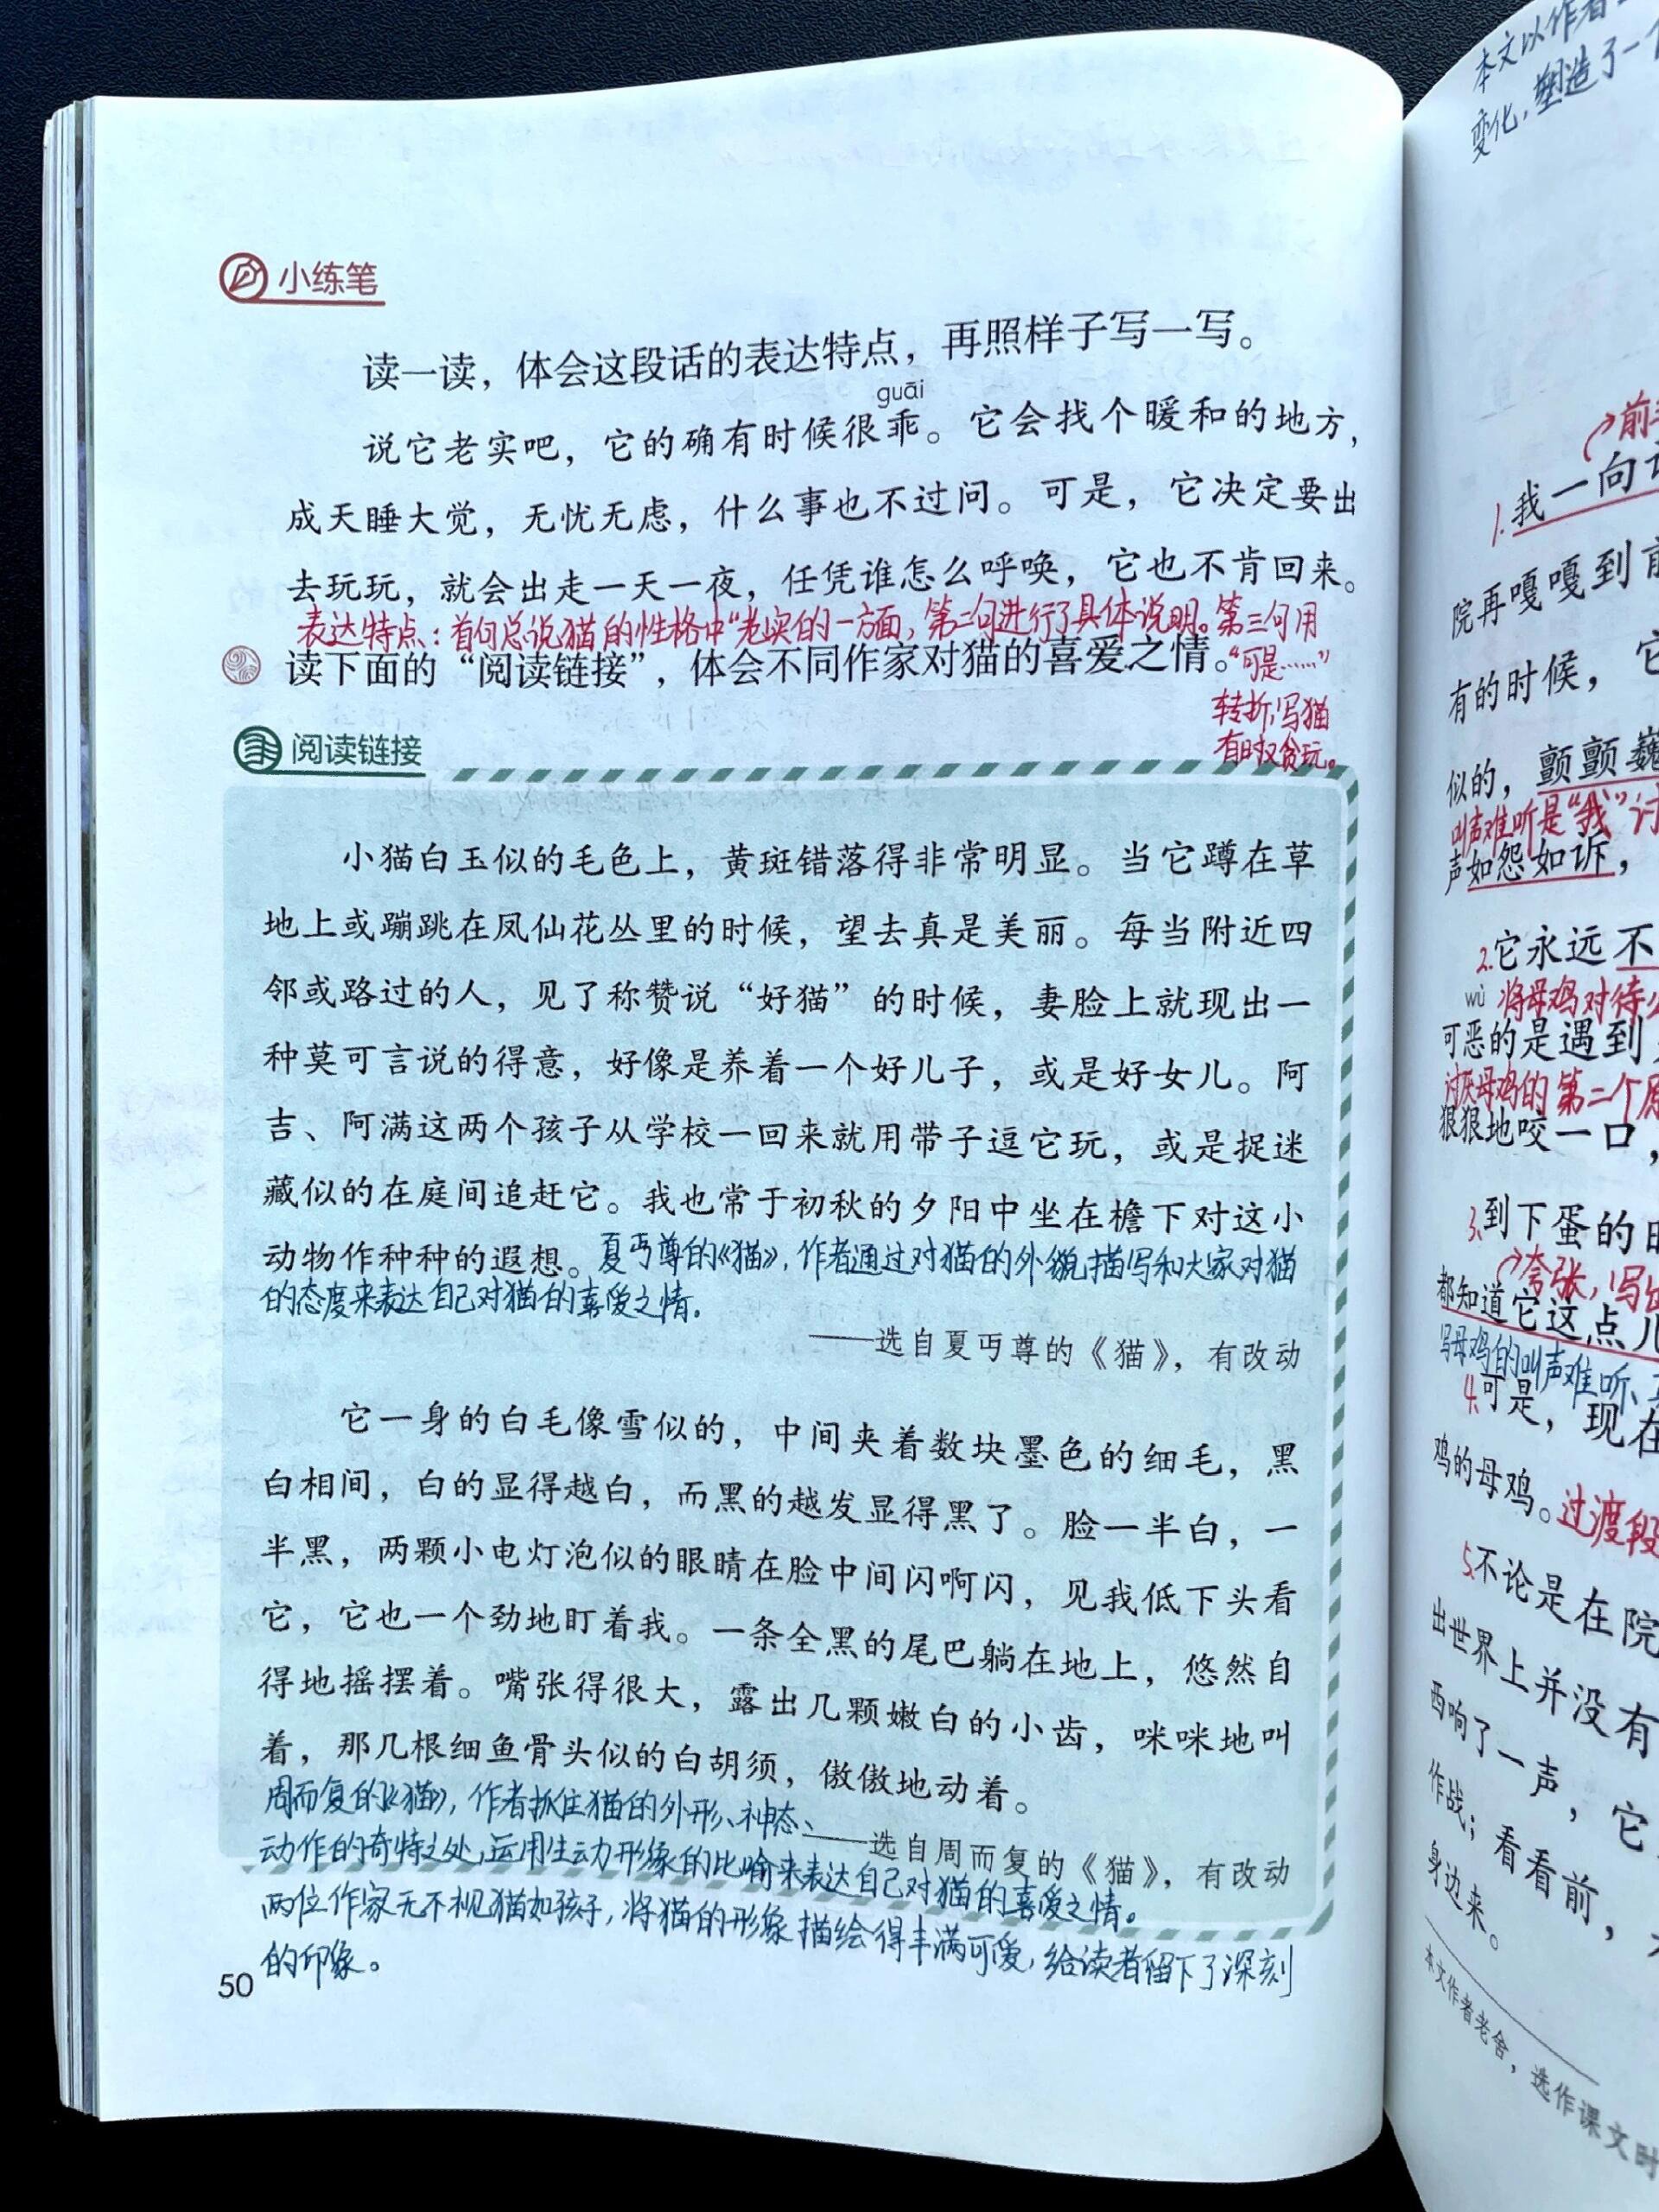 小练笔
读一读，体会这段话的表达特点，再照样子写一写。
guāi
说它老实吧，它的确有时候很乖。它会找个暖和的地方，
成天睡大觉，无忧无虑，什么事也不过问。可是，它决定要出
去玩玩，就会出走一天一夜，任凭谁怎么呼唤，它也不肯回来。
表达特点：首句总说猫的性格中“老实的一方面，第二句进行了具体说明。第三句用
“可是……”
转折，写猫
有时又贪玩。
读下面的“阅读链接”，体会不同作家对猫的喜爱之情。
阅读链接
小猫白玉似的毛色上，黄斑错落得非常明显。当它蹲在草
地上或蹦跳在凤仙花丛里的时候，望去真是美丽。每当附近四
邻或路过的人，见了称赞说“好猫”的时候，妻脸上就现出一
种莫可言说的得意，好像是养着一个好儿子，或是好女儿。阿
吉、阿满这两个孩子从学校一回来就用带子逗它玩，或是捉迷
藏似的在庭间追赶它。我也常于初秋的夕阳中坐在檐下对这小
动物作种种的遐想。
夏丏尊的《猫》，作者通过对猫的外貌描写和大家对猫
的态度来表达自己对猫的喜爱之情。
——选自夏丏尊的《猫》，有改动
它一身的白毛像雪似的，中间夹着数块墨色的细毛，黑
白相间，白的显得越白，而黑的越发显得黑了。脸一半白，一
半黑，两颗小电灯泡似的眼睛在脸中间闪啊闪，见我低下头看
它，它也一个劲地盯着我。一条全黑的尾巴躺在地上，悠然自
得地摇摆着。嘴张得很大，露出几颗嫩白的小齿，咪咪地叫
着，那几根细鱼骨头似的白胡须，傲傲地动着。
周而复的《猫》，作者抓住猫的外形、神态、
——选自周而复的《猫》，有改动
动作的奇特之处，运用生动形象的比喻来表达自己对猫的喜爱之情。
两位作家无不视猫如孩子，将猫的形象描绘得丰满可爱，给读者留下了深刻
的印象。
50
本文以作者
变化，塑造了一
前
1.我一向
院再嘎嘎到前
有的时候，它
似的，颤颤巍
叫声难听是“我”讨
声如怨如诉，
2.它永远不
wù
将母鸡对待
可恶的是遇到
讨厌母鸡的第二个原
狠狠地咬一口，
3.到下蛋的时
夸张，写出
都知道它这点儿
写母鸡的叫声难听、
4.可是，现在
鸡的母鸡。过渡段
5.不论是在院
出世界上并没有
西响了一声，它
作战；看看前，
身边来。
本文作者老舍，选作课文时